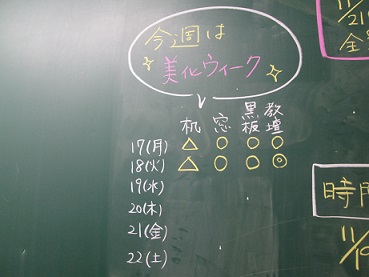 今週は
美化ウィーク
机 窓 黒板 教壇
17(月) △ ○ ○ ○
18(火) △ ○ ○ ◎
19(水)
20(木)
21(金)
22(土)
11/
21(
全
時間
11/10